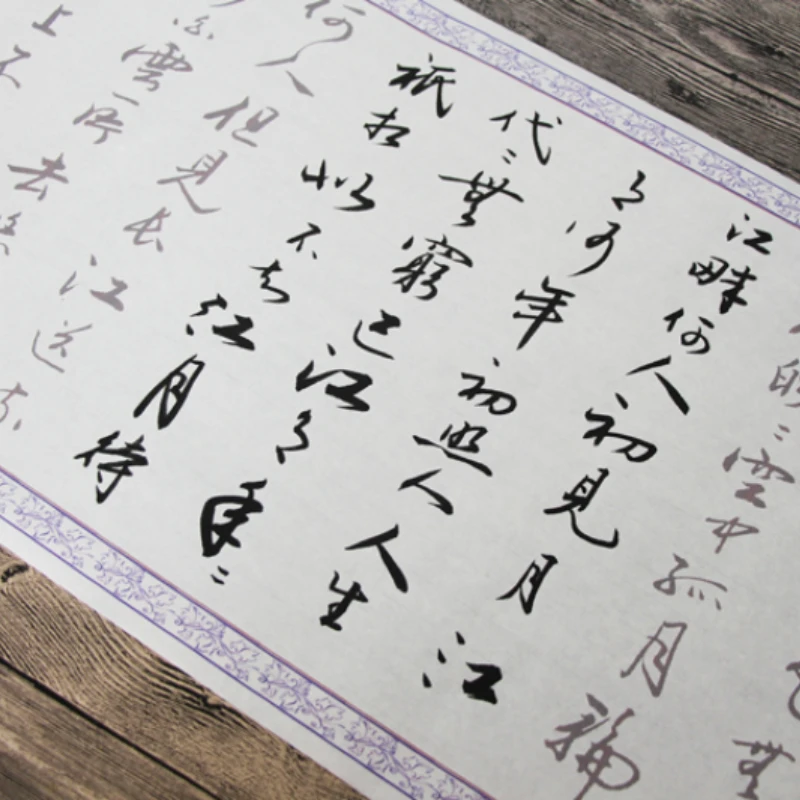 無
皎〻空中孤月輪
江畔何人初見月江
月何年初照人人生
代〻無窮已江月年〻
祇相似不知江月待
何人但見長江送流
雲一片去悠
上不